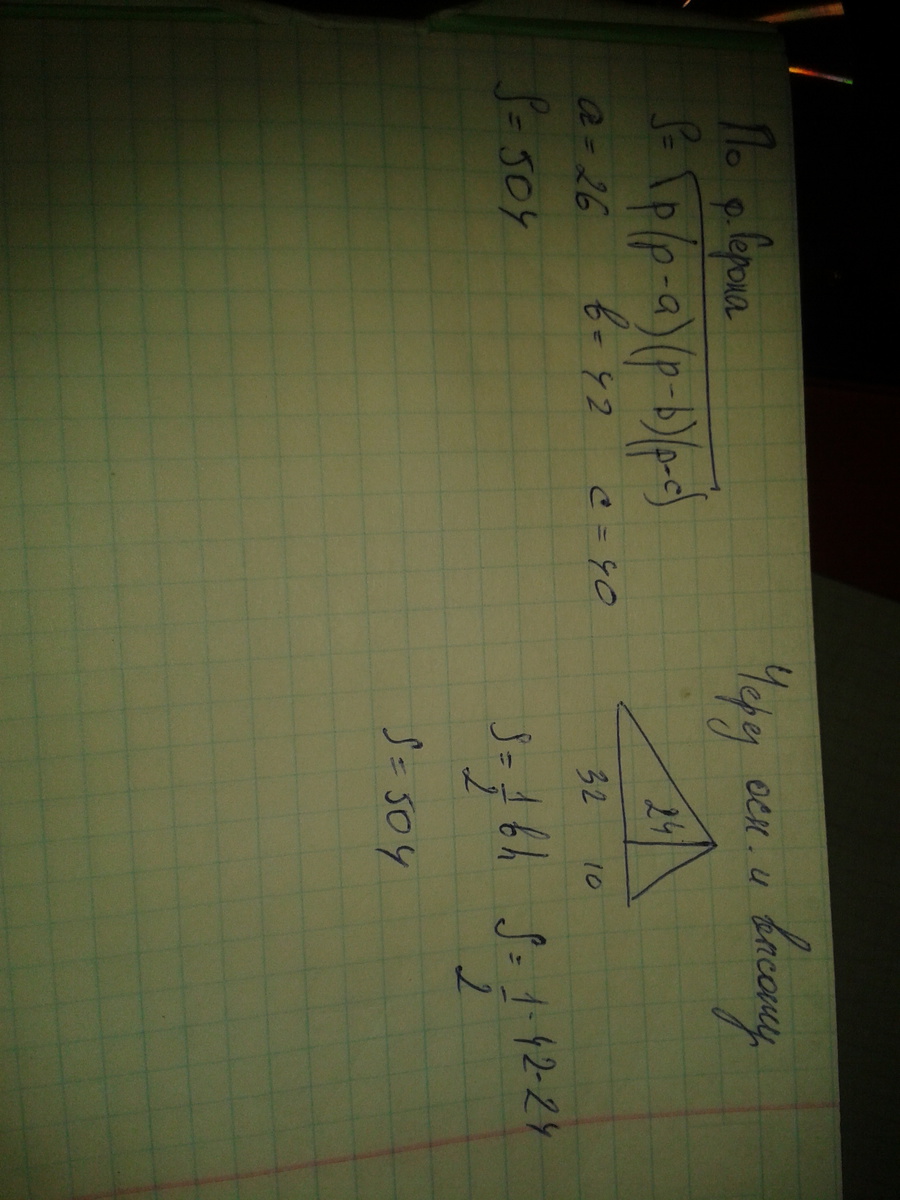 По ф. Герона
S = √p(p-a)(p-b)(p-c)
a = 26 b = 42 c = 40
S = 504
Через осн. и высоту
24
32 10
S = 1/2 bh S = 1/2 · 42 · 24
S = 504